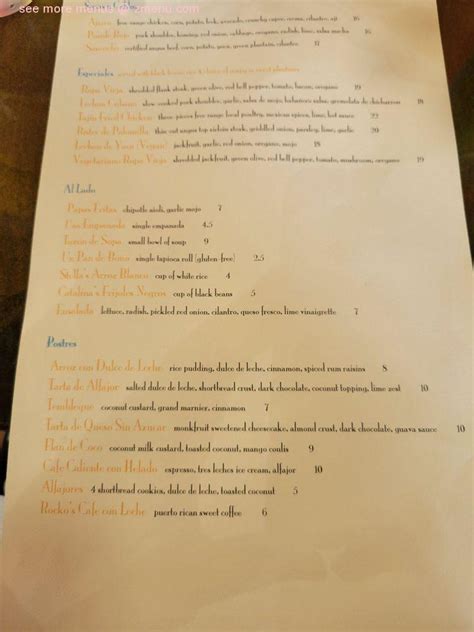 see more menus @ zmenu.com
Ajiaco free range chicken, corn, potato, leek, avocado, crunchy caper, crema, cilantro, aji 16
Posole Rojo pork shoulder, hominy, red onion, cabbage, oregano, radish, lime, salsa macha 16
Sancocho certified angus beef, corn, potato, yuca, green plantain, cilantro 17
Especiales served with black beans, rice & choice of maduros or sweet plantains
Ropa Vieja shredded flank steak, green olive, red bell pepper, tomato, bacon, oregano 19
Lechon Cubano slow cooked pork shoulder, garlic, salsa de mojo, habanero salsa, gremolata de chicharron 18
Tajin Fried Chicken three piece free range local poultry, mexican spices, lime, hot sauce 22
Bistec de Palomilla thin cut angus top sirloin steak, griddled onion, parsley, lime, garlic 20
Lechon de Yaca (Vegan) jackfruit, garlic, red onion, oregano, mojo 18
Vegetariano Ropa Vieja shredded jackfruit, green olive, red bell pepper, tomato, mushroom, oregano 19
Al Lado
Papas Fritas chipotle aioli, garlic mojo 7
Una Empanada single empanada 4.5
Tazon de Sopa small bowl of soup 9
Un Pan de Bono single tapioca roll (gluten-free) 2.5
Stella's Arroz Blanco cup of white rice 4
Catalina's Frijoles Negros cup of black beans 5
Ensalada lettuce, radish, pickled red onion, cilantro, queso fresco, lime vinaigrette 7
Postres
Arroz con Dulce de Leche rice pudding, dulce de leche, cinnamon, spiced rum raisins 8
Tarta de Alfajor salted dulce de leche, shortbread crust, dark chocolate, coconut topping, lime zest 10
Tembleque coconut custard, grand marnier, cinnamon 7
Tarta de Queso Sin Azucar monkfruit sweetened cheesecake, almond crust, dark chocolate, guava sauce 10
Flan de Coco coconut milk custard, toasted coconut, mango coulis 9
Cafe Caliente con Helado espresso, tres leches ice cream, alfajor 10
Alfajores 4 shortbread cookies, dulce de leche, toasted coconut 5
Rocko's Cafe con Leche puerto rican sweet coffee 6